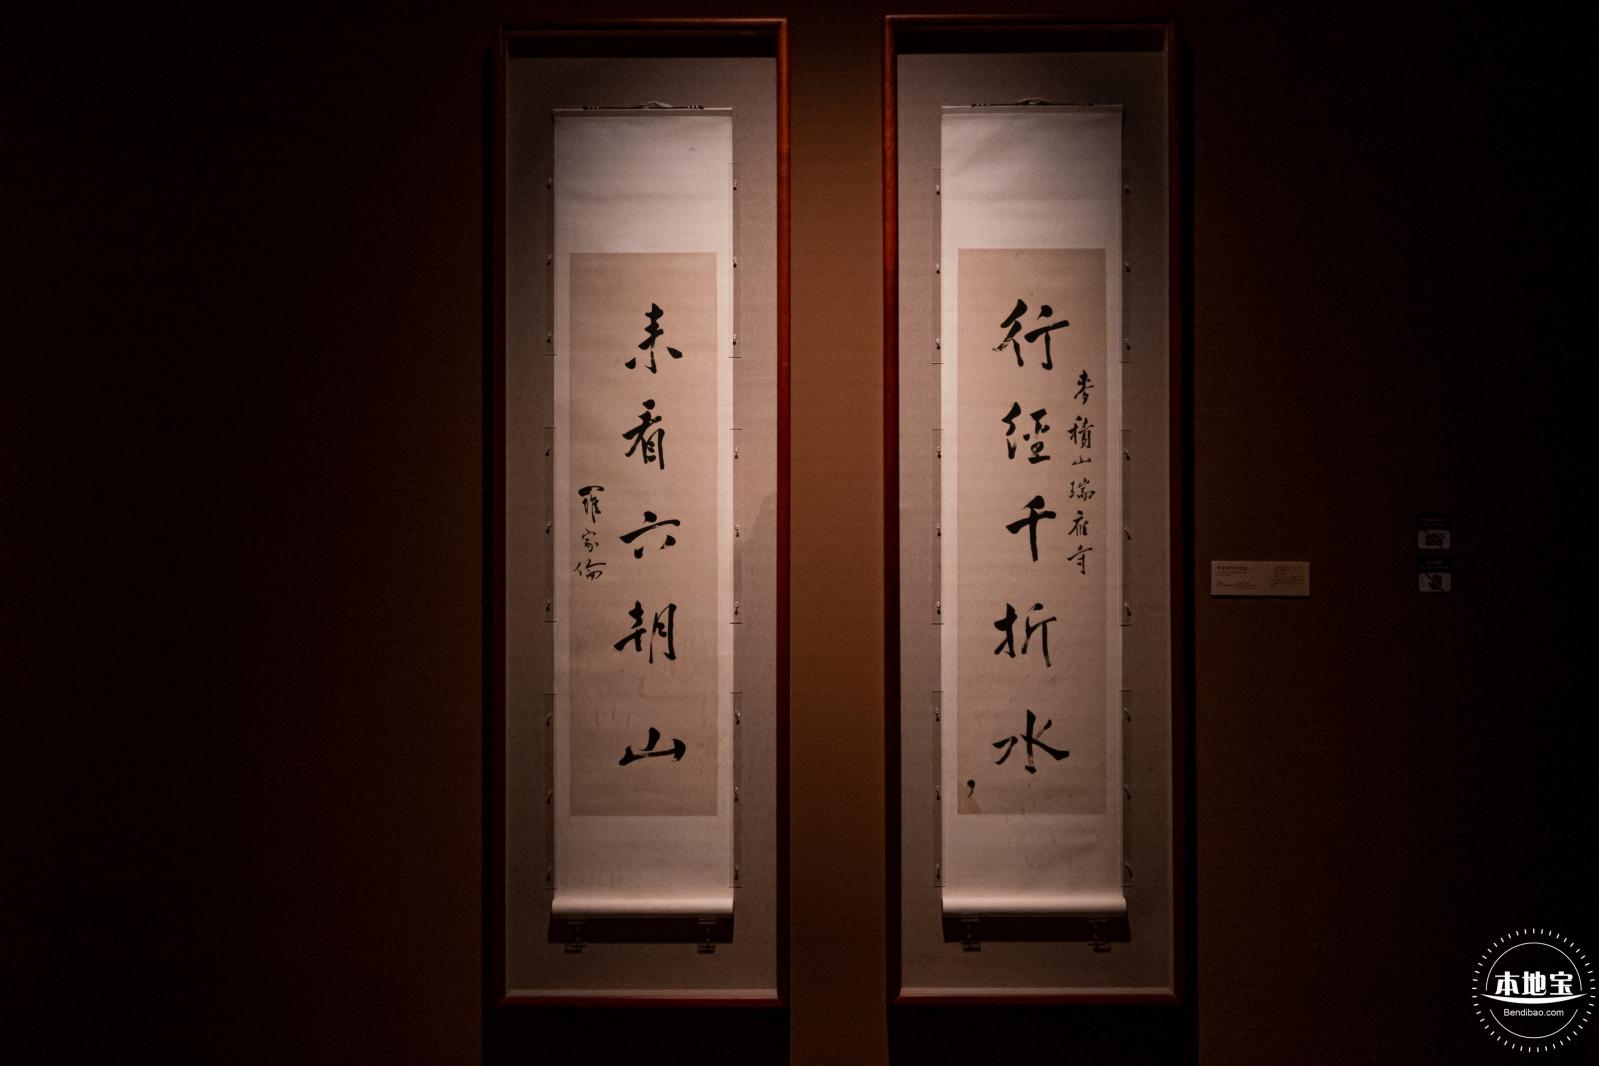 行經千折水
麥積山瑞應寺
来看六朝山
羅家倫
本地宝
Bendibao.com